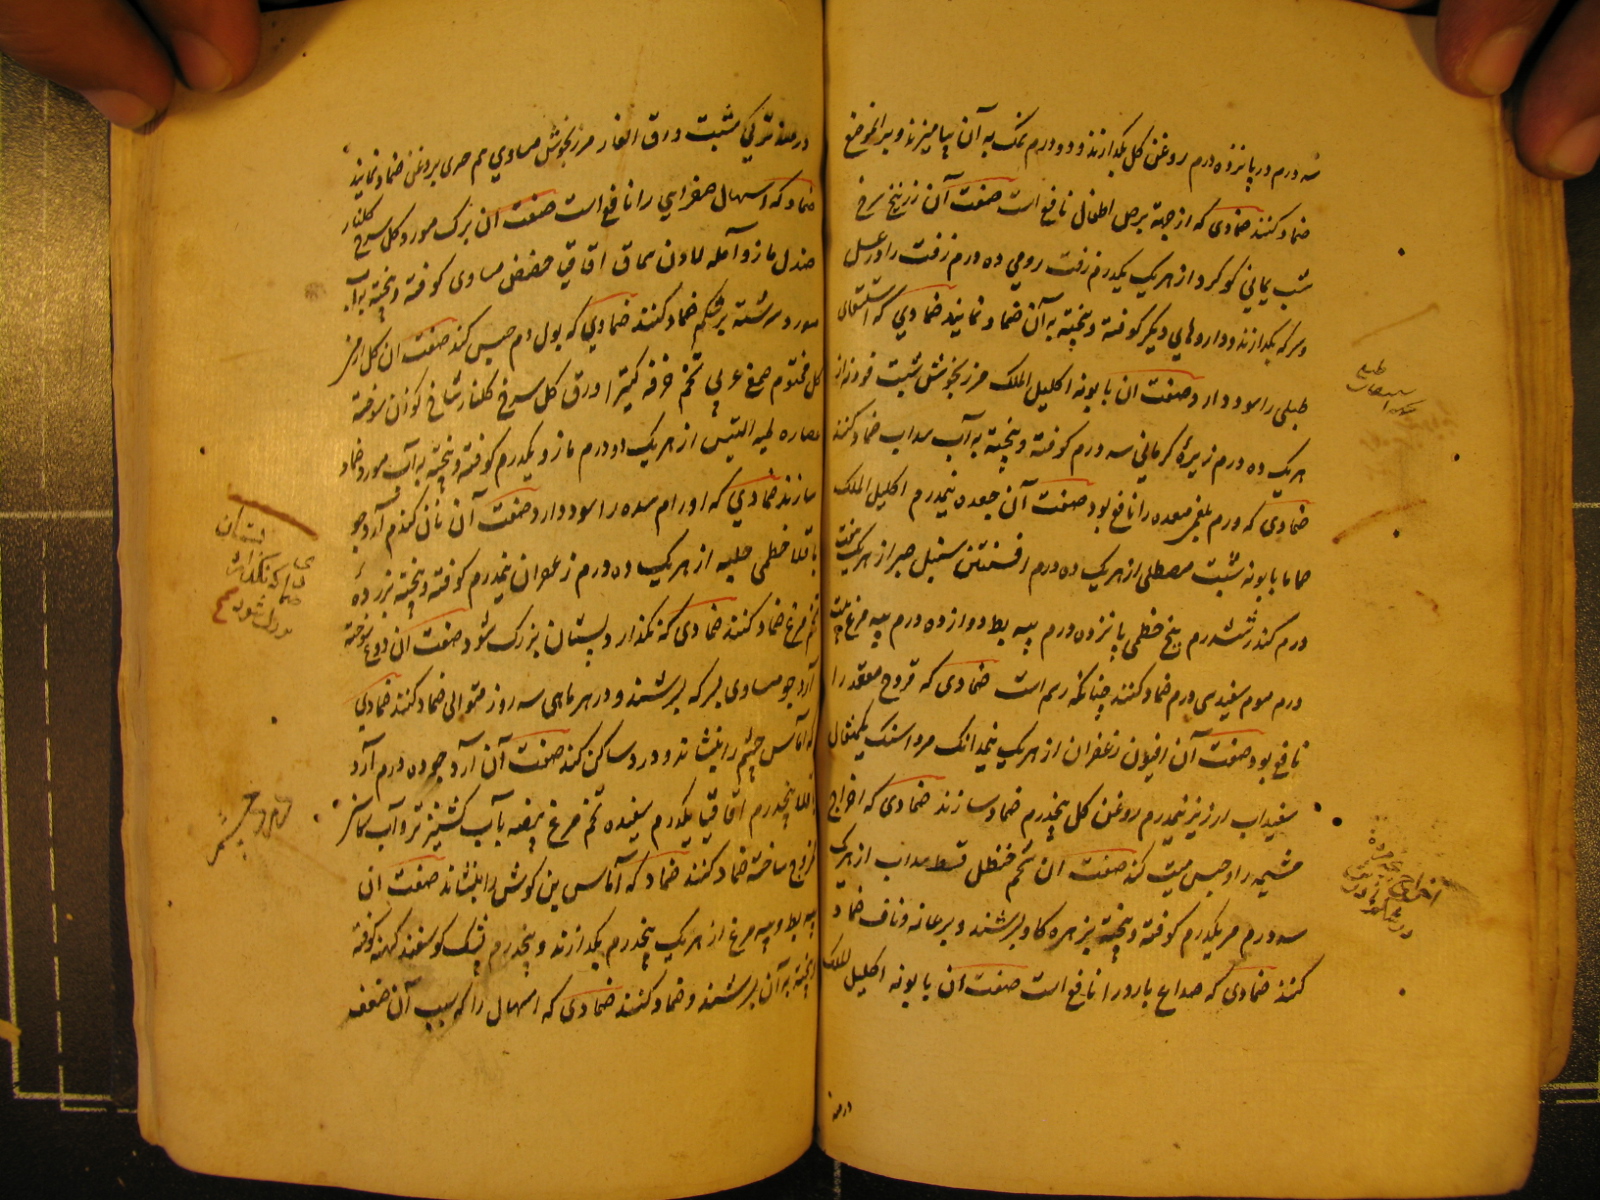 سه درم در پانزده درم روغن کل بکدازند و دو درم نمک به آن بیامیزند و بران موضع
ضماد کنند ضمادی که از جهة برص اطفال نافع است صفت آن زرنیخ سرخ
شب یمانی کوکرد از هر یک یکدرم زفت رومی ده درم زفت را در عسل
و سرکه بکدازند و داروهای دیکر کوفته و پخته به آن ضماد نمایند ضمادی که استسقای
طبلی را سود دارد صفت ان بابونه اکلیل الملک مرزنجوش شبت
هر یک ده درم زیرهٔ کرمانی سه درم کوفته و پخته به آب سداب ضماد کنند
ضمادی که ورم بلغمی معده را نافع بود صفت آن جعده نیمدرم اکلیل الملک
حماما بابونه شبت مصطکی از هر یک ده درم افسنتین سنبل صبر از هر یک هفت
درم کندر ششدرم بیخ خطمی پانزده درم پیه بط دوازده درم پیه مرغ بیست
درم موم سفید سی درم ضماد کنند چنانکه رسم است ضمادی که قروح مقعد را
نافع بود صفت آن افیون زعفران از هر یک نیمدانک مرداسنک یکمثقال
سفیداب ارزیز نیمدرم روغن کل پنجدرم ضماد سازند ضمادی که اخراج
مشیمه و حبس میت کند صفت ان شحم حنظل قسط سداب از هر یک
سه درم مر یکدرم کوفته و پخته بزهره کاو بسرشند و بر عانه و ناف ضماد
کنند ضمادی که صداع بارد را نافع است صفت ان بابونه اکلیل الملک
درمنه
درمنه ترکی شبت ورق الغار مرزنجوش مساوی بروغن ضماد نمایند
ضماد که اسهال صفرایی را نافع است صفت ان برک مورد کل سرخ کلنار
صندل مازو آمله لادن سماق اقاقیا حضض مساوی کوفته و پخته به آب
مورد سرشته بر شکم ضماد کنند ضمادی که بول دم حبس کند صفت ان کل ارمنی
کل مختوم صمغ عربی تخم خرفه کتیرا ورق کل سرخ کلنار شاخ کوزن سوخته
عصاره لحیه التیس از هر یک دو درم مازو یکدرم کوفته و پخته به آب مورد ضماد
سازند ضمادی که اورام معده را سود دارد صفت آن نان کندم آرد جو
باقلا خطمی حلبه از هر یک ده درم زعفران نیمدرم کوفته و پخته بزردهٔ
تخم مرغ ضماد کنند ضمادی که نکذارد پستان بزرک شود صفت ان
آرد جو مساوی بسرکه بسرشند و در هر ماهی سه روز متوالی ضماد کنند ضمادی
که آماس چشم را بنشاند و درد ساکن کند صفت آن آرد جو ده درم آرد
باقلا پنجدرم اقاقیا یکدرم سفیده تخم مرغ نیمه بآب کشنیز تر و آب کاسنی
ممزوج ساخته ضماد کنند ضماد که آماس بن کوش را بنشاند صفت ان
پیه بط و پیه مرغ از هر یک پنجدرم بکدازند و پنجدرم پشک کوسفند کهنه کوفته
و پخته به آن بسرشند و ضماد کنند ضمادی که اسهال را که سبب آن ضعف